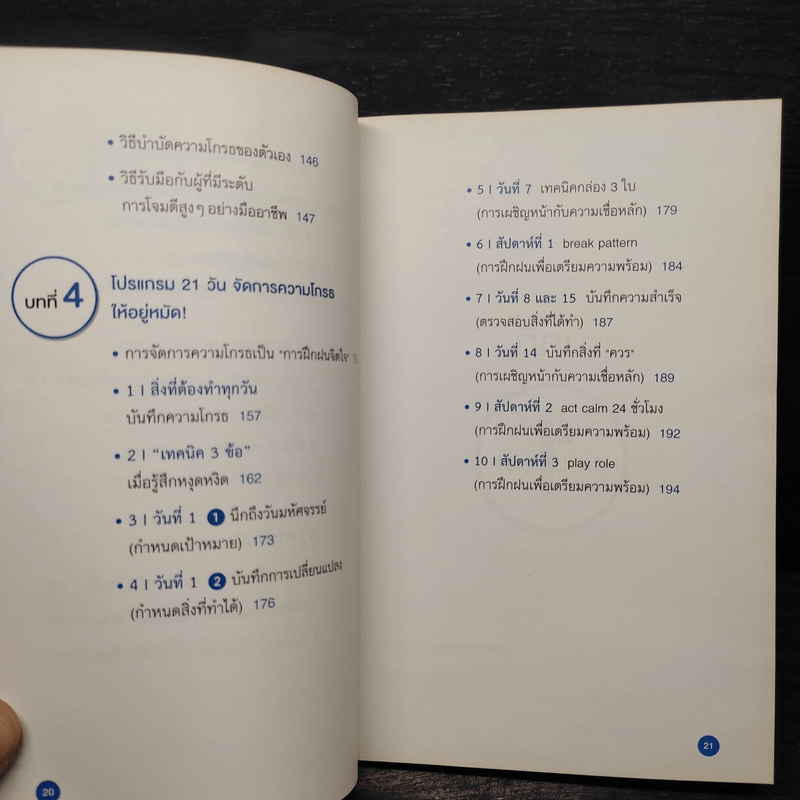 • วิธีบำบัดความโกรธของตัวเอง 146
• วิธีรับมือกับผู้ที่มีระดับ
การโจมตีสูงๆ อย่างมืออาชีพ 147
บทที่ 4
โปรแกรม 21 วัน จัดการความโกรธ
ให้อยู่หมัด!
• การจัดการความโกรธเป็น "การฝึกฝนจิตใจ"
• 1 | สิ่งที่ต้องทำทุกวัน
บันทึกความโกรธ 157
• 2 | "เทคนิค 3 ข้อ"
เมื่อรู้สึกหงุดหงิด 162
• 3 | วันที่ 1 1 นึกถึงวันมหัศจรรย์
(กำหนดเป้าหมาย) 173
• 4 | วันที่ 1 2 บันทึกการเปลี่ยนแปลง
(กำหนดสิ่งที่ทำได้) 176
20
• 5 | วันที่ 7 เทคนิคกล่อง 3 ใบ
(การเผชิญหน้ากับความเชื่อหลัก) 179
• 6 | สัปดาห์ที่ 1 break pattern
(การฝึกฝนเพื่อเตรียมความพร้อม) 184
• 7 | วันที่ 8 และ 15 บันทึกความสำเร็จ
(ตรวจสอบสิ่งที่ได้ทำ) 187
• 8 | วันที่ 14 บันทึกสิ่งที่ "ควร"
(การเผชิญหน้ากับความเชื่อหลัก) 189
• 9 | สัปดาห์ที่ 2 act calm 24 ชั่วโมง
(การฝึกฝนเพื่อเตรียมความพร้อม) 192
• 10 | สัปดาห์ที่ 3 play role
(การฝึกฝนเพื่อเตรียมความพร้อม) 194
21